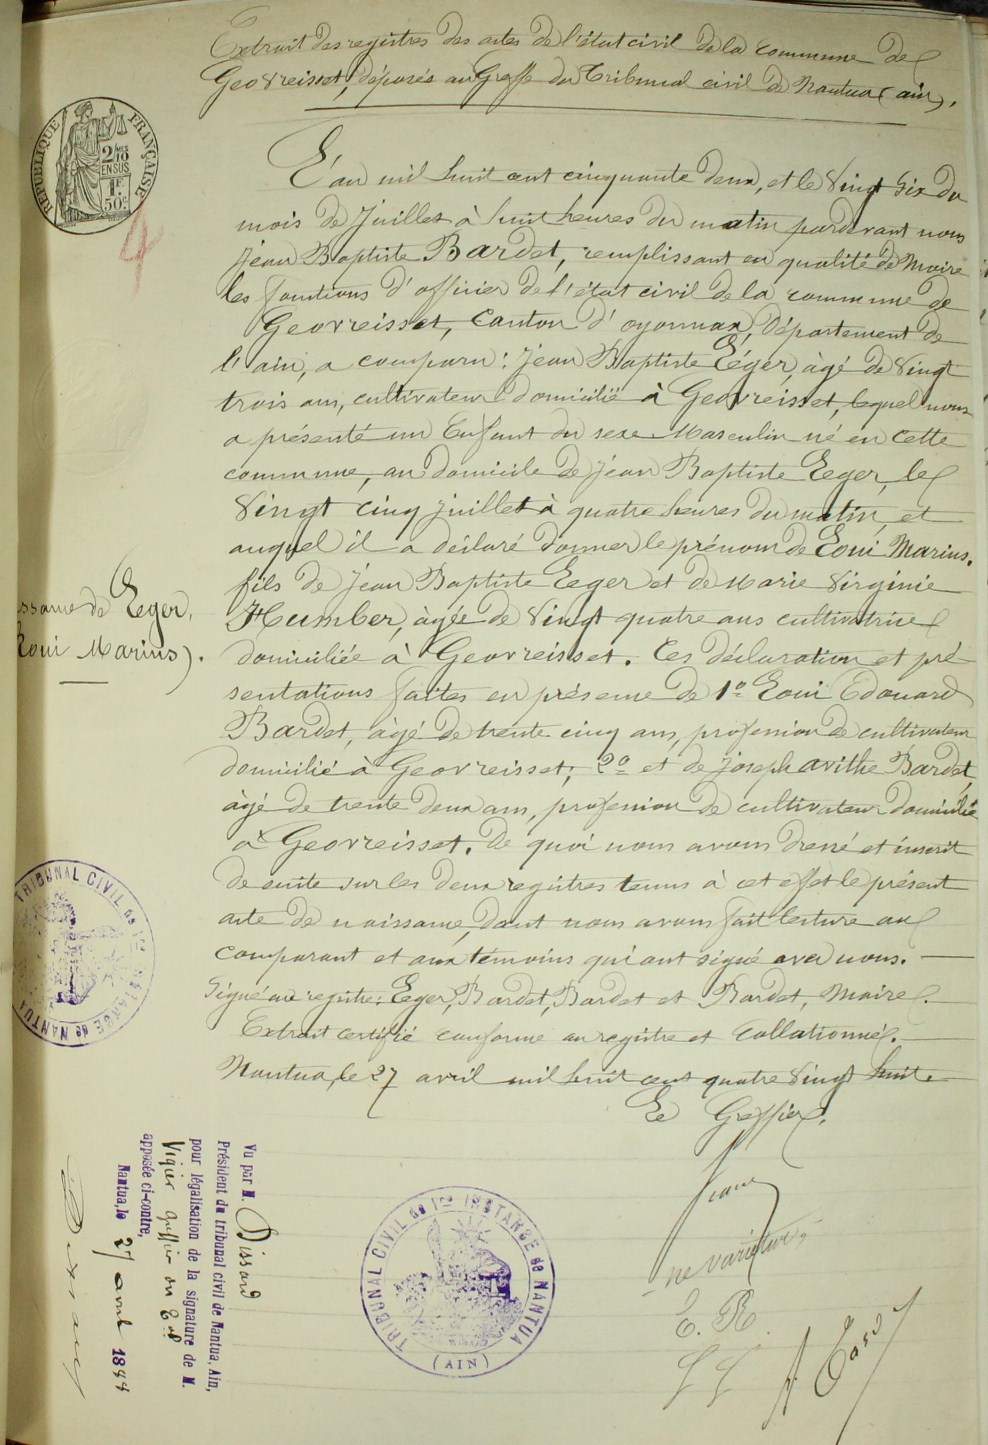 Extrait des registres des actes de l'état civil de la commune de
Geovreisset, déposés au Greffe du Tribunal civil de Nantua (ain).
REPUBLIQUE FRANÇAISE
2/10
EN SUS
1F.
50c
L'an mil huit cent cinquante deux, et le vingt six du
mois de Juillet à huit heures du matin pardevant nous
Jean Baptiste Bardet, remplissant en qualité de Maire
les fonctions d'officier de l'état civil de la commune de
Geovreisset, Canton d'oyonnax, Département de
l'ain, a comparu: Jean Baptiste Léger, âgé de vingt
trois ans, cultivateur domicilié à Geovreisset, lequel nous
a présenté un Enfant du sexe Masculin né en cette
commune, au domicile de Jean Baptiste Leger, le
vingt cinq juillet à quatre heures du matin, et
auquel il a déclaré donner le prénom de Loui Marius.
fils de Jean Baptiste Leger et de Marie Virginie
Humber, âgée de vingt quatre ans cultivatrice
domiciliée à Geovreisset. Ces déclaration et pré
sentations faites en présence de 1o Loui Edouard
Bardet, âgé de trente cinq ans, profession de cultivateur
domicilié à Geovreisset; 2o et de Joseph avithe Bardet,
âgé de trente deux ans, profession de cultivateur domicilié
à Geovreisset. De quoi nous avons dressé et inscrit
de suite sur les deux registres tenus à cet effet le présent
acte de naissance, dont nous avons fait lecture au
comparant et aux témoins qui ont signé avec nous.
Signé au registre: Leger, Bardet, Bardet et Bardet, Maire.
Extrait certifié conforme au registre et Collationné.
Nantua, le 27 avril mil huit cent quatre vingt huit.
Le Greffier.
ssance de Leger,
Loui Marius).
TRIBUNAL CIVIL de 1re INSTANCE de NANTUA
Vu par M. Dissard
Président du tribunal civil de Nantua, Ain,
pour légalisation de la signature de M.
Vigier greffier en
apposée ci-contre,
Nantua, le 27 avril 1888
TRIBUNAL CIVIL de 1re INSTANCE de NANTUA
(AIN)
ne varietur
E. R.